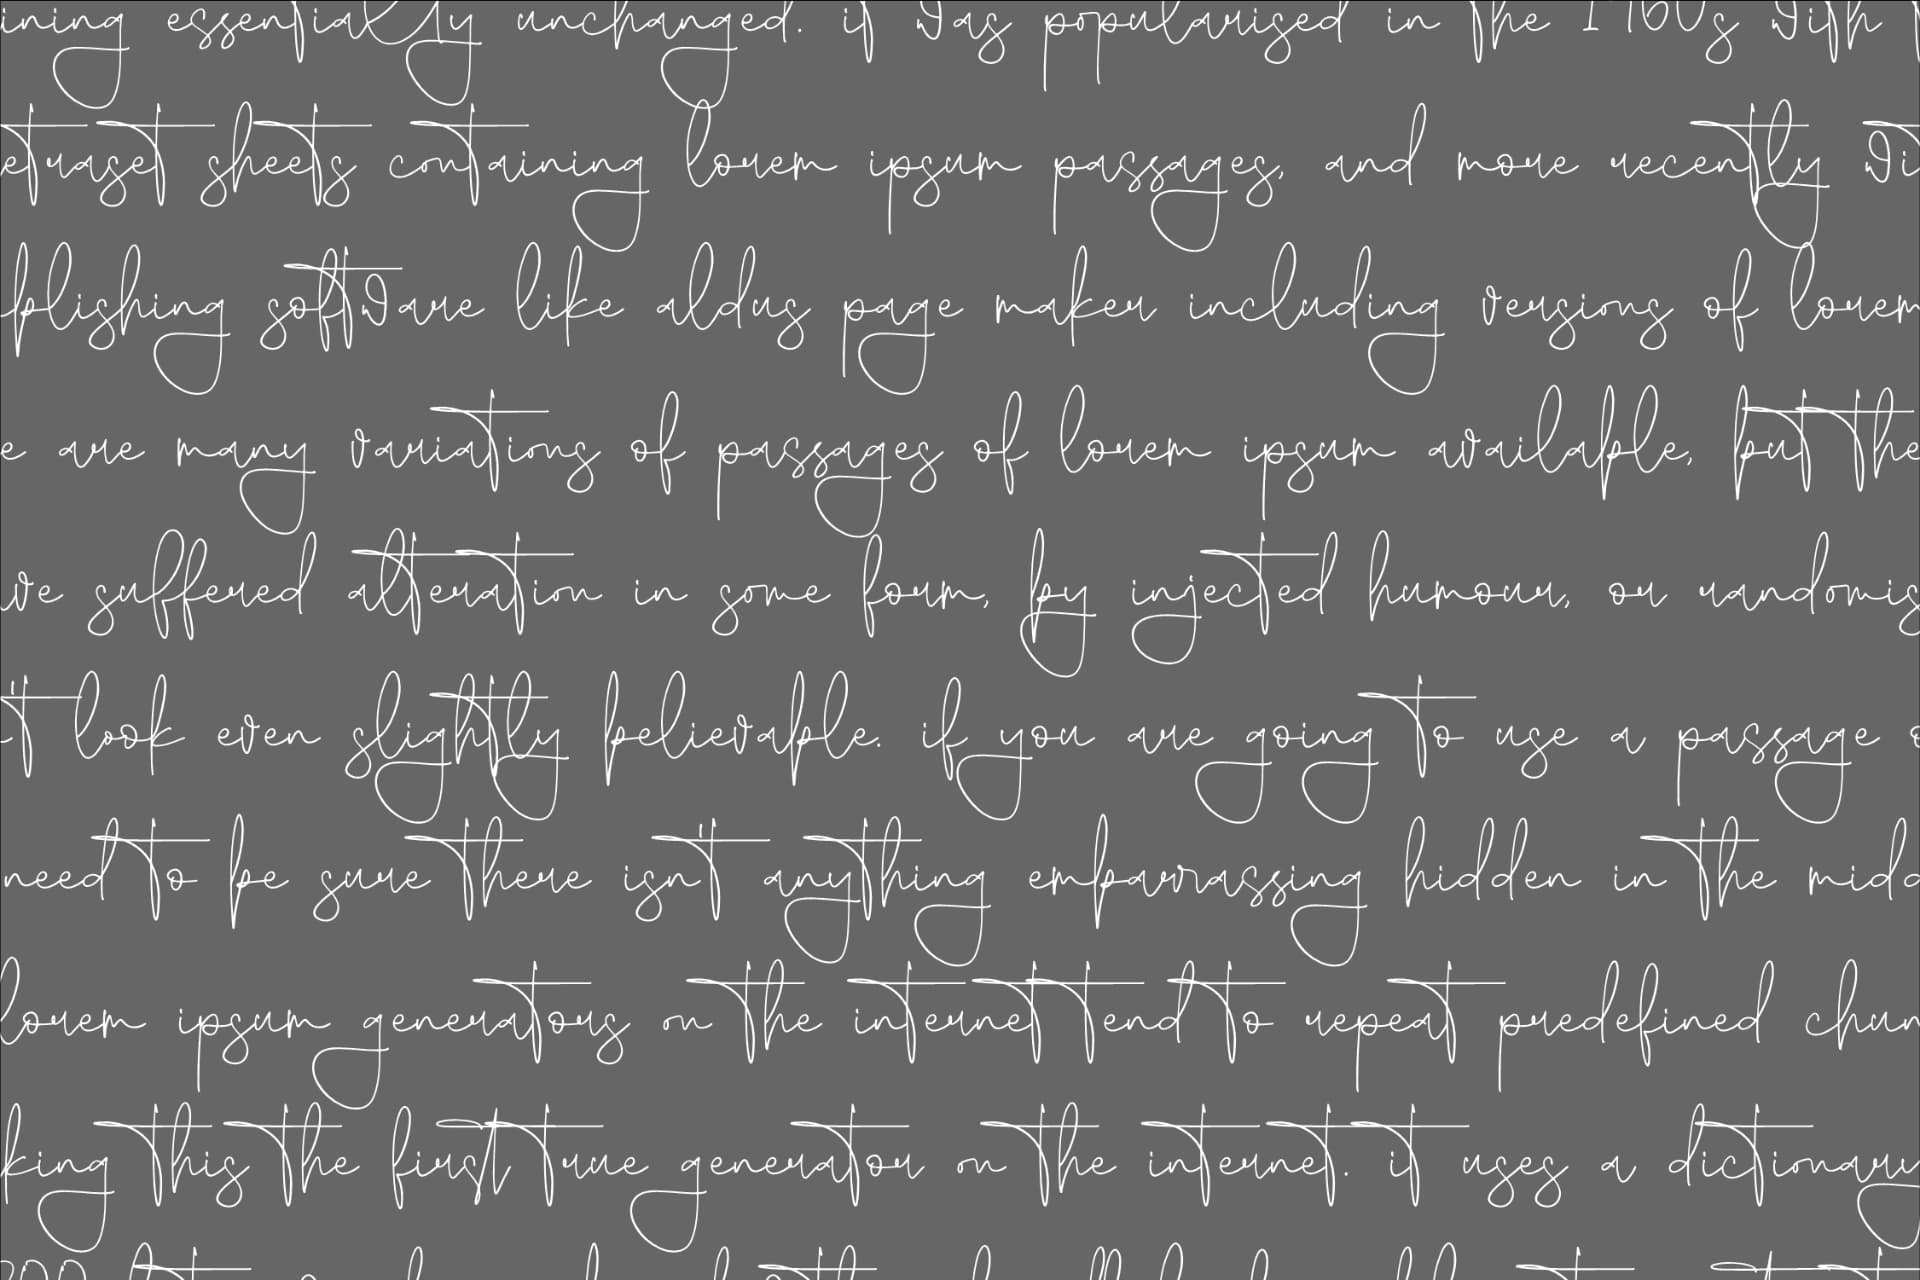 ining essentially unchanged. it was popularised in the 1960s with
etraset sheets containing lorem ipsum passages, and more recently wi
blishing software like aldus page maker including versions of lorem
e are many variations of passages of lorem ipsum available, but the
ve suffered alteration in some form, by injected humour, or randomis
't look even slightly believable. if you are going to use a passage o
need to be sure there isn't anything embarrassing hidden in the midd
lorem ipsum generators on the internet tend to repeat predefined chun
king this the first true generator on the internet. it uses a dictionary